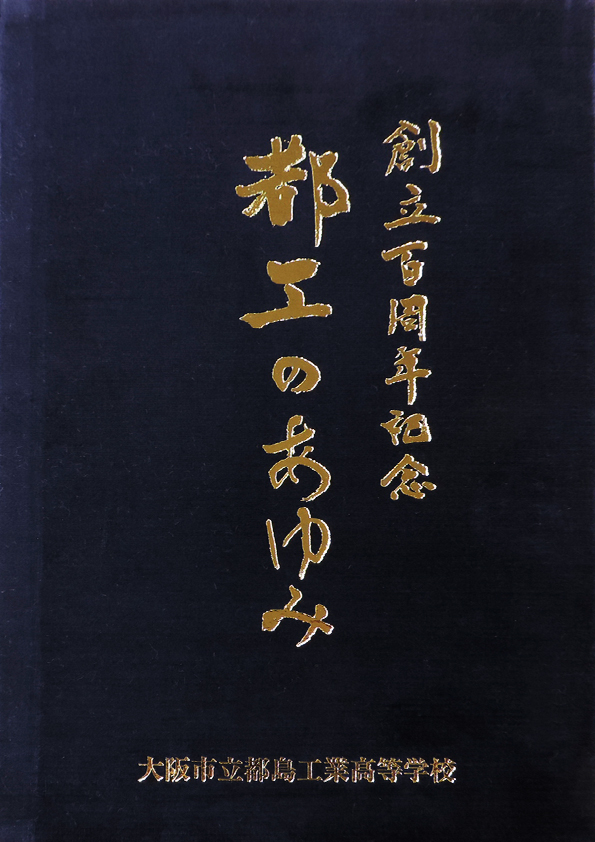 創立百周年記念
都工のあゆみ
大阪市立都島工業高等学校